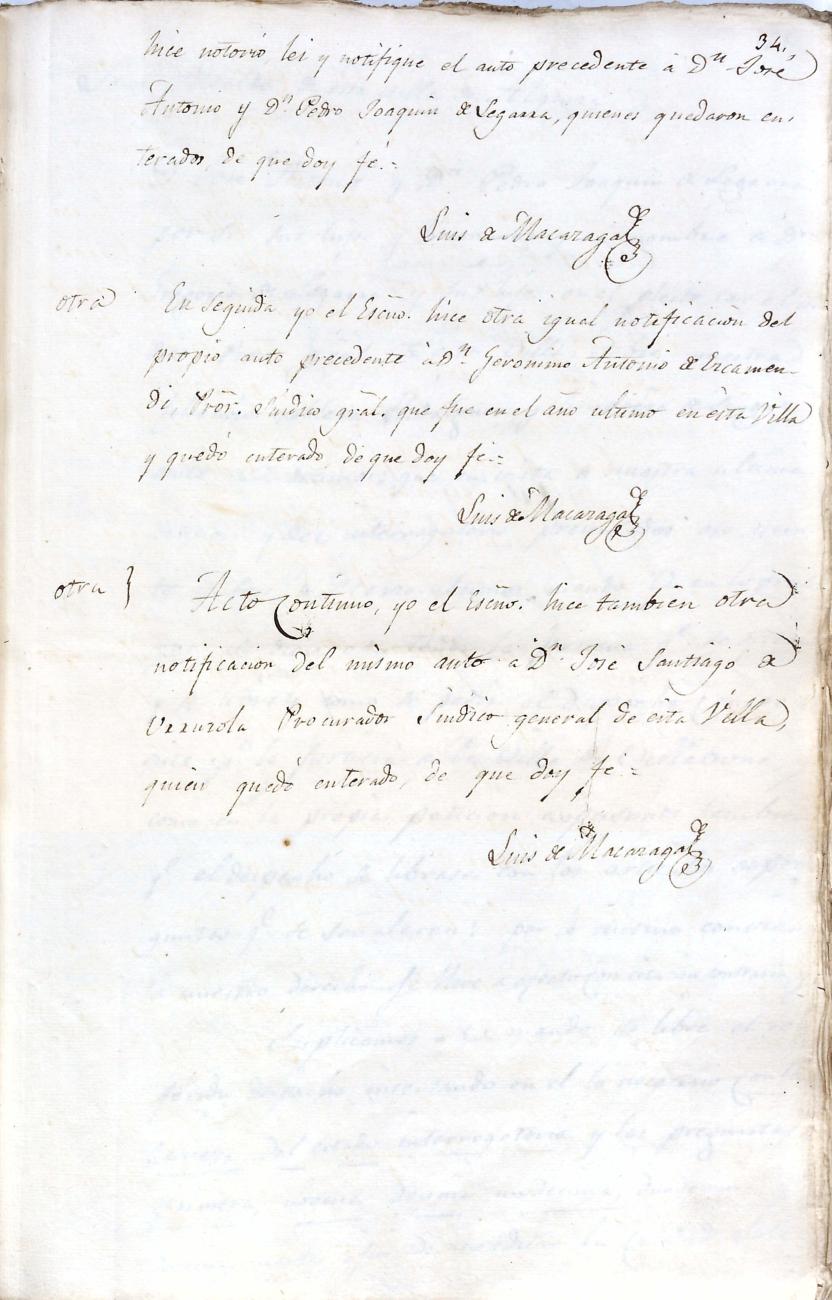 34.
hice notorio, lei y notifique el auto precedente â Dn. José
Antonio y Dn. Pedro Joaquin de Segarra, quienes quedaron en-
terados, de que doy fé.=
Luis de Macazaga
otra En Seguida yo el Esčno. hice otra igual notificacion del
propio auto precedente à Dn. Geronimo Antonio de Ezcamen-
di, Pror. Síndico gral. que fue en el año ultimo en esta Villa
y quedó enterado, de que doy fé.=
Luis de Macazaga
otra } Acto Continuo, yo el Esčno. hice tambien otra
notificacion del mismo auto à Dn. José Santiago de
Urruzola Procurador Sindico general de esta Villa,
quien quedó enterado, de que doy fé.=
Luis de Macazaga